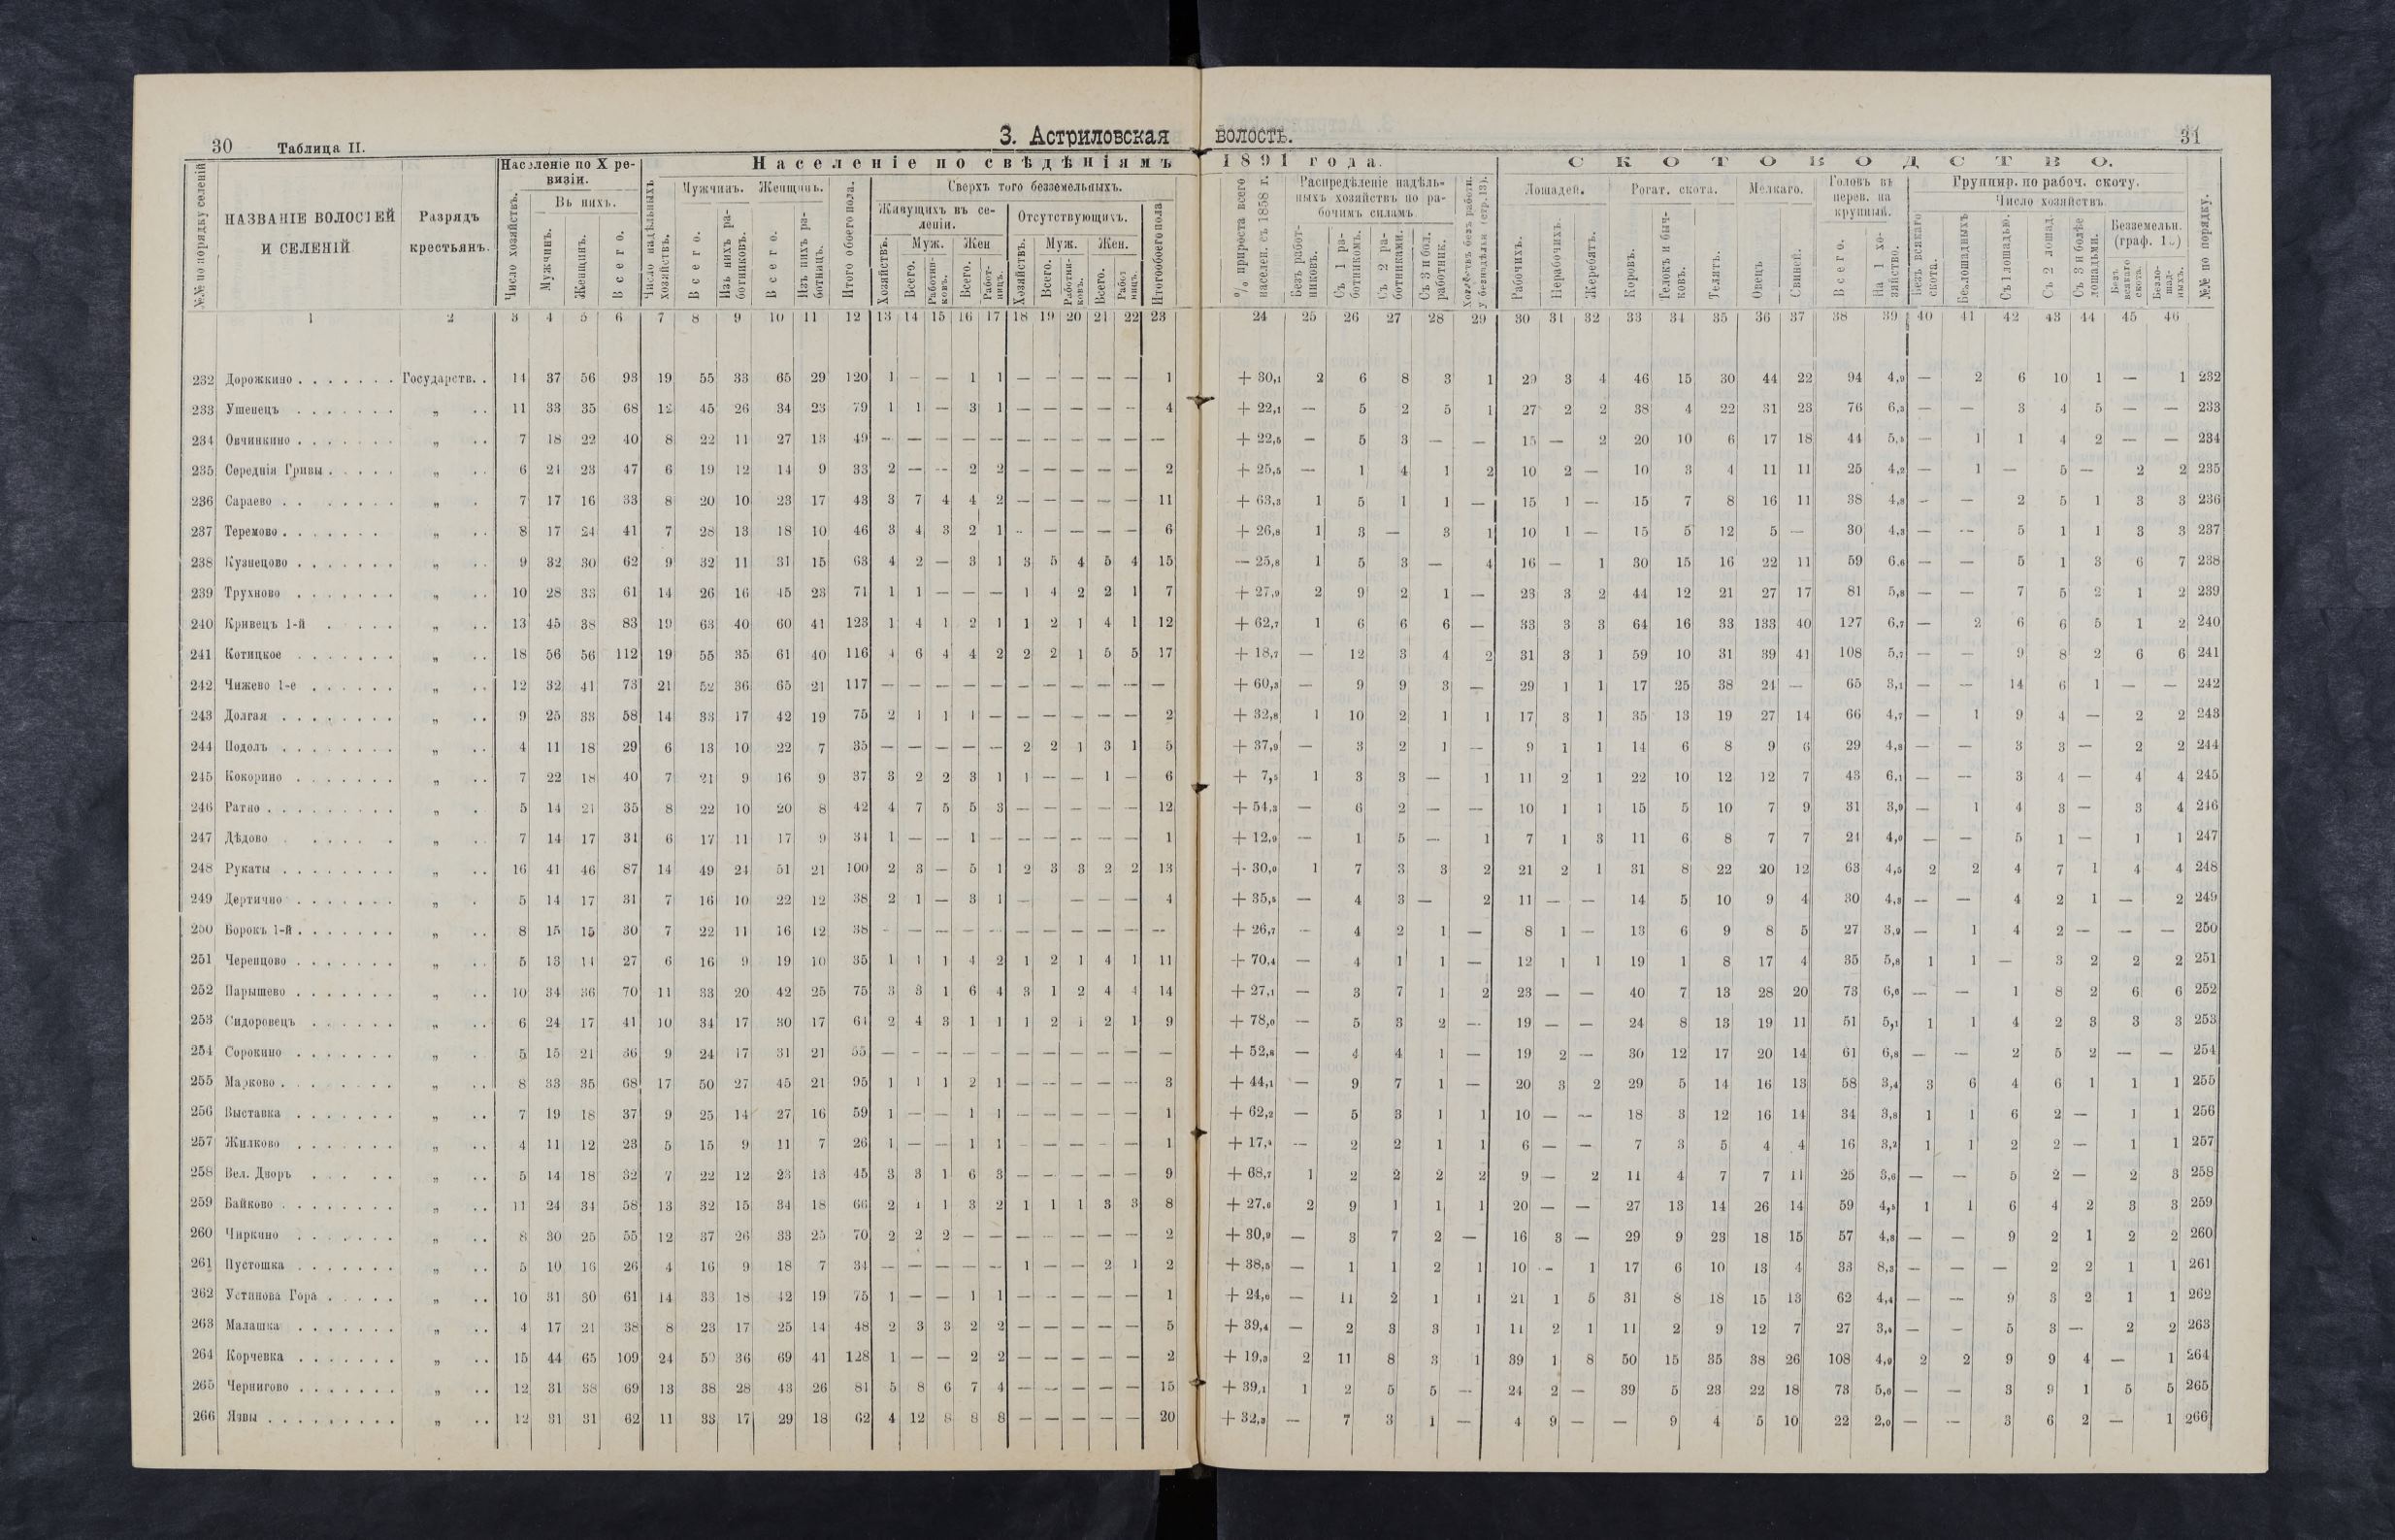 30 Таблица II. 3. Астриловская волость. 31
№№ по порядку селеній
НАЗВАНІЕ ВОЛОСТЕЙ И СЕЛЕНІЙ
Разрядъ крестьянъ.
Населеніе по X ревизіи.
Число хозяйствъ. Въ нихъ. Мужчинъ. Женщинъ. Всего.
Населеніе по свѣдѣніямъ 1891 года.
Число надѣльныхъ хозяйствъ. Мужчинъ. Всего. Изъ нихъ работниковъ. Женщинъ. Всего. Изъ нихъ работницъ. Итого обоего пола.
Сверхъ того безземельныхъ.
Живущихъ въ селеніи. Хозяйствъ. Муж. Всего. Работниковъ. Жен Всего. Работницъ.
Отсутствующихъ. Хозяйствъ. Муж. Всего. Работниковъ. Жен. Всего. Работницъ. Итого обоего пола
% прироста всего населен. съ 1858 г.
Распредѣленіе надѣльныхъ хозяйствъ по рабочимъ силамъ
Безъ работниковъ. Съ 1 работникомъ. Съ 2 работниками. Съ 3 и бол. работник.
СКОТОВОДСТВО.
Лошадей. Рабочихъ. Нерабочихъ. Жеребятъ.
Рогат. скота. Коровъ. Телокъ и бычковъ. Телятъ.
Мелкаго. Овецъ Свиней.
Головъ въ перев. на крупный. Всего. На 1 хозяйство.
Группир. по рабоч. скоту.
Число хозяйствъ
Безъ всякаго скота. Безлошадныхъ Съ 1 лошадью. Съ 2 лошад. Съ 3 и болѣе лошадьми.
Безземельн. Безъ всякаго скота. Безлошадныхъ.
№№ по порядку.
1 2 3 4 5 6 7 8 9 10 11 12 13 14 15 16 17 18 19 20 21 22 23 24 25 26 27 28 29 30 31 32 33 34 35 36 37 38 39 40 41 42 43 44 45 46
232 Дорожкино Государств. 14 37 56 93 19 55 33 65 29 120 1 — — 1 1 — — — — — 1 + 30,1 2 6 8 3 1 29 3 4 46 15 30 44 22 94 4,9 — 2 6 10 1 — 1 232
233 Ушенецъ „ 11 33 35 68 12 45 26 34 23 79 1 1 — 3 1 — — — — — 4 + 22,1 — 5 2 5 1 27 2 2 38 4 22 31 23 76 6,3 — — 3 4 5 — — 233
234 Овчинкино „ 7 18 22 40 8 22 11 27 13 49 — — — — — — — — — — — + 22,5 — 5 3 — — 15 — 2 20 10 6 17 18 44 5,5 — 1 1 4 2 — — 234
235 Середнія Гривы „ 6 24 23 47 6 19 12 14 9 33 2 — — 2 2 — — — — — 2 + 25,5 — 1 4 1 2 10 2 — 10 3 4 11 11 25 4,2 — 1 — 5 — 2 2 235
236 Сараево „ 7 17 16 33 8 20 10 23 17 43 3 7 4 4 2 — — — — — 11 + 63,3 1 5 1 1 — 15 1 — 15 7 8 16 11 38 4,8 — — 2 5 1 3 3 236
237 Теремово „ 8 17 24 41 7 28 13 18 10 46 3 4 3 2 1 — — — — — 6 + 26,8 1 3 — 3 1 10 1 — 15 5 12 5 — 30 4,3 — — 5 1 1 3 3 237
238 Кузнецово „ 9 32 30 62 9 32 11 31 15 63 4 2 — 3 1 3 5 4 5 4 15 — 25,8 1 5 3 — 4 16 — 1 30 15 16 22 11 59 6,6 — — 5 1 3 6 7 238
239 Трухново „ 10 28 33 61 14 26 16 45 23 71 1 1 — — — 1 4 2 2 1 7 + 27,9 2 9 2 1 — 23 3 2 44 12 21 27 17 81 5,8 — — 7 5 2 1 2 239
240 Кривецъ 1-й „ 13 45 38 83 19 63 40 60 41 123 1 4 1 2 1 1 2 1 4 1 12 + 62,7 1 6 6 6 — 33 3 3 64 16 33 133 40 127 6,7 — 2 6 6 5 1 2 240
241 Котицкое „ 18 56 56 112 19 55 35 61 40 116 4 6 4 4 2 2 2 1 5 5 17 + 18,7 — 12 3 4 2 31 3 1 59 10 31 39 41 108 5,7 — — 9 8 2 6 6 241
242 Чижево 1-е „ 12 32 41 73 21 52 36 65 21 117 — — — — — — — — — — — + 60,3 — 9 9 3 — 29 1 1 17 25 38 24 — 65 3,1 — — 14 6 1 — — 242
243 Долгая „ 9 25 33 58 14 33 17 42 19 75 2 1 1 1 — — — — — — 2 + 32,8 1 10 2 1 1 17 3 1 35 13 19 27 14 66 4,7 — 1 9 4 — 2 2 243
244 Подолъ „ 4 11 18 29 6 13 10 22 7 35 — — — — — 2 2 1 3 1 5 + 37,9 — 3 2 1 — 9 1 1 14 6 8 9 6 29 4,8 — — 3 3 — 2 2 244
245 Кокорино „ 7 22 18 40 7 21 9 16 9 37 3 2 2 3 1 1 — — 1 — 6 + 7,5 1 3 3 — 1 11 2 1 22 10 12 12 7 43 6,1 — — 3 4 — 4 4 245
246 Ратно „ 5 14 21 35 8 22 10 20 8 42 4 7 5 5 3 — — — — — 12 + 54,3 — 6 2 — — 10 1 1 15 5 10 7 9 31 3,9 — 1 4 3 — 3 4 246
247 Дѣдово „ 7 14 17 31 6 17 11 17 9 34 1 — — 1 — — — — — — 1 + 12,9 — 1 5 — 1 7 1 3 11 6 8 7 7 24 4,0 — — 5 1 — 1 1 247
248 Рукаты „ 16 41 46 87 14 49 24 51 21 100 2 3 — 5 1 2 3 3 2 2 13 + 30,0 1 7 3 3 2 21 2 1 31 8 22 20 12 63 4,5 2 2 4 7 1 4 4 248
249 Дертично „ 5 14 17 31 7 16 10 22 12 38 2 1 — 3 1 — — — — — 4 + 35,5 — 4 3 — 2 11 — — 14 5 10 9 4 30 4,3 — — 4 2 1 — 2 249
250 Борокъ 1-й „ 8 15 15 30 7 22 11 16 12 38 — — — — — — — — — — — + 26,7 — 4 2 1 — 8 1 — 13 6 9 8 5 27 3,9 — 1 4 2 — — — 250
251 Черенцово „ 5 13 14 27 6 16 9 19 10 35 1 1 1 4 2 1 2 1 4 1 11 + 70,4 — 4 1 1 — 12 1 1 19 1 8 17 4 35 5,8 1 1 — 3 2 2 2 251
252 Парышево „ 10 34 36 70 11 33 20 42 25 75 3 3 1 6 4 3 1 2 4 4 14 + 27,1 — 3 7 1 2 23 — — 40 7 13 28 20 73 6,6 — — 1 8 2 6 6 252
253 Сидоровецъ „ 6 24 17 41 10 34 17 30 17 64 2 4 3 1 1 1 2 1 2 1 9 + 78,0 — 5 3 2 — 19 — — 24 8 13 19 11 51 5,1 1 1 4 2 3 3 3 253
254 Сорокино „ 5 15 21 36 9 24 17 31 21 55 — — — — — — — — — — — + 52,8 — 4 4 1 — 19 2 — 30 12 17 20 14 61 6,8 — — 2 5 2 — — 254
255 Марково „ 8 33 35 68 17 50 27 45 21 95 1 1 1 2 1 — — — — — 3 + 44,1 — 9 7 1 — 20 3 2 29 5 14 16 13 58 3,4 3 6 4 6 1 1 1 255
256 Выставка „ 7 19 18 37 9 25 14 27 16 59 1 — — 1 1 — — — — — 1 + 62,2 — 5 3 1 1 10 — — 18 3 12 16 14 34 3,8 1 1 6 2 — 1 1 256
257 Жилково „ 4 11 12 23 5 15 9 11 7 26 1 — — 1 1 — — — — — 1 + 17,4 — 2 2 1 1 6 — — 7 3 5 4 4 16 3,2 1 1 2 2 — 1 1 257
258 Вел. Дворъ „ 5 14 18 32 7 22 12 23 13 45 3 3 1 6 3 — — — — — 9 + 68,7 1 2 2 2 2 9 — 2 11 4 7 7 11 25 3,6 — — 5 2 — 2 3 258
259 Байково „ 11 24 34 58 13 32 15 34 18 66 2 1 1 3 2 1 1 1 3 3 8 + 27,6 2 9 1 1 1 20 — — 27 13 14 26 14 59 4,5 1 1 6 4 2 3 3 259
260 Чиркино „ 8 30 25 55 12 37 26 33 25 70 2 2 2 — — — — — — — 2 + 30,9 — 3 7 2 — 16 3 — 29 9 23 18 15 57 4,8 — — 9 2 1 2 2 260
261 Пустошка „ 5 10 16 26 4 16 9 18 7 34 — — — — — 1 — — 2 1 2 + 38,5 — 1 1 2 1 10 — 1 17 6 10 13 4 33 8,3 — — — 2 2 1 1 261
262 Устинова Гора „ 10 31 30 61 14 33 18 42 19 75 1 — — 1 1 — — — — — 1 + 24,6 — 11 2 1 1 21 1 5 31 8 18 15 13 62 4,4 — — 9 3 2 1 1 262
263 Малашка „ 4 17 21 38 8 23 17 25 14 48 2 3 3 2 2 — — — — — 5 + 39,4 — 2 3 3 1 11 2 1 11 2 9 12 7 27 3,4 — — 5 3 — 2 2 263
264 Корчевка „ 15 44 65 109 24 59 36 69 41 128 1 — — 2 2 — — — — — 2 + 19,3 2 11 8 3 1 39 1 8 50 15 35 38 26 108 4,0 2 2 9 9 4 — 1 264
265 Чернигово „ 12 31 38 69 13 38 28 43 26 81 5 8 6 7 4 — — — — — 15 + 39,1 1 2 5 5 — 24 2 — 39 5 23 22 18 73 5,6 — — 3 9 1 5 5 265
266 Язвы „ 12 31 31 62 11 33 17 29 18 62 4 12 8 8 8 — — — — — 20 + 32,3 — 7 3 1 — 4 9 — — 9 4 5 10 22 2,0 — — 3 6 2 — 1 266